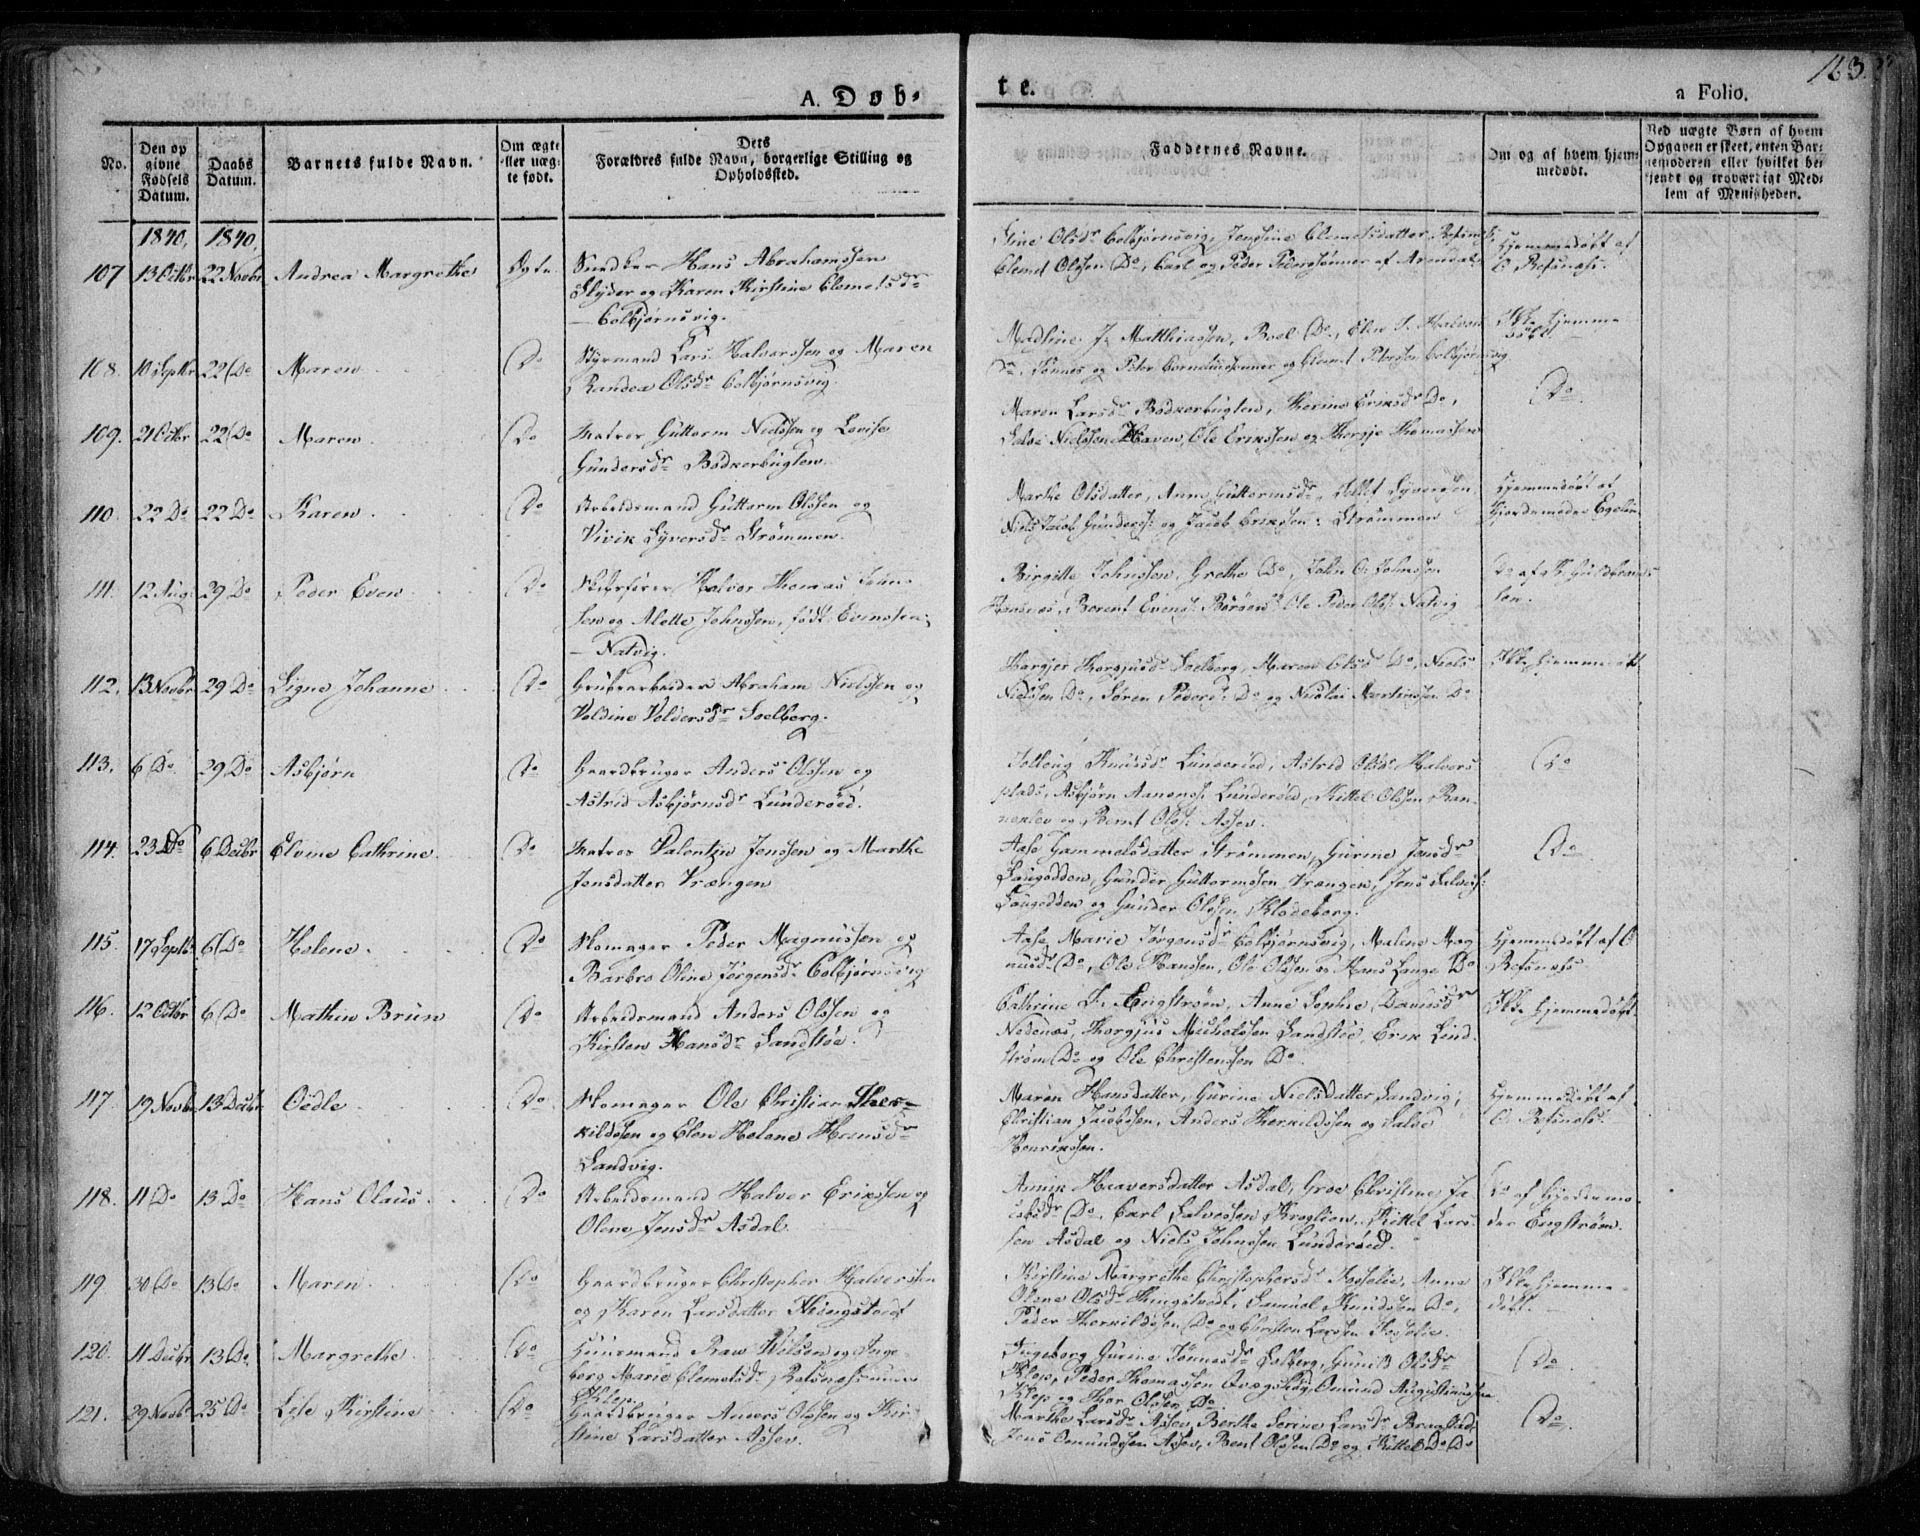 163.
A. Døb-
te.
a Folio.
No.
Den op
givne
Fødsels
Datum.
Daabs
Datum.
Barnets fulde Navn.
Om ægte
eller uæg-
te født.
Dets
Forældres fulde Navn, borgerlige Stilling og
Opholdssted.
Faddernes Navne.
Om og af hvem hjem-
medøbt.
Ved uægte Børn af hvem
Opgaven er skeet, enten Bar-
nemoderen eller hvilket be-
kjendt og troværdigt Med-
lem af Menigheden.
1840, 1840,
107 13 Octbr 22 Novbr Andrea Margrethe Ægte Snedker Hans Abrahamssen
Slyder og Karen Kirstine Clemetsdr
Colbjørnsvig.
Stine Olsdr Colbjørnsvig, Jensine Clemetsdatter
Clemet Olssen Do, Carl og Peder Pederssønner af Arendal
Hjemmedøbt af
O. Refsnæs.
108. 10 Septbr 22 Do Maren Do Styrmand Lars Halvorssen og Maren
Randea Olsdr Colbjørnsvig.
Madline J. Matthiassen, Boel Do, Elen S. Halvors
Do, Tønnes og Peter Corneliussønner og Clemet Peterssen Colbjørnsvig
Ikke hjemme
døbt.
109. 21 Octbr 22 Do Maren Do Matros Guttorm Nielssen og Lovise
Gundersdr Bødkerbugten.
Maren Larsdr Bødkerbugten, Therine Eriksdr Do,
Salve Nielssen Haven, Ole Erikssen og Thorgje Thomassen
Do
110. 22 Do 22 Do Karen Do Arbeidsmand Guttorm Olssen og
Vivik Syversdr Strømmen.
Marthe Olsdatter, Anne Guttormsdr, Tellef Syverssen,
Niels Jacob Gunders: og Jacob Erikssen: Strømmen
Hjemmedøbt af
Gjordemoder
111. 12 Aug. 29 Do Peder Even Do Skibsfører Halvor Thomas John
sen og Alette Johnssen, født Evenssen;
Natvig.
Birgitte Johnssen, Grethe Do, John O. Johnssen
Berent Evens: Ole Peder Ols: Natvig
Do af
112. 13 Novbr 29 Do Signe Johanne Do Grubearbeider Abraham Nielssen og
Voldine Voldersdr Soelberg.
Thorgjusdr Soelberg, Maren Olsdr Do, Niels
Nielssen Do, Søren Peders: Do og Nicolai Martinssen Do
Ikke hjemmedøbt
113. 6 Do 29 Do Asbjørn Do Gaardbruger Anders Olssen og
Astrid Asbjørnsdr Lunderød.
Knudsdr Lunderød, Astrid Olsdr Halvors
plads, Asbjørn Aanons: Lunderød, Kittel Olssen Ran-
neklev og Bernt Ols: Assev.
Do
114. 23 Do 6 Decbr Elvine Cathrine Do Matros Valentin Jenssen og Marthe
Jensdatter Vrængen
Aase Gammelsdatter Strømmen, Gurine Jensdr
Gunder Guttormssen Vrængen, Jens Salves:
og Gunder Olssen Klødeborg.
Do
115. 17 Septbr 6 Do Helene Do Skomager Peder Magnussen og
Barbro Oline Jørgensdr Colbjørnsvig
Aase Marie Jørgensdr Colbjørnsvig, Malene Mag
nusdr Do, Ole Hanssen, Ole Olssen og Hans Lange Do
Hjemmedøbt af O
Refsnæs
116. 12 Octbr 6 Do Mathen Brun Do Arbeidsmand Anders Olssen og
Kirsten Hansdr Sandstøe.
Cathrine Engstrøm, Anne Sophie Davidsdr
Nedenæs, Thorgjus Michelssen Sandstøe, Erik Lind
strøm Do og Ole Christenssen Do.
Ikke hjemmedøbt
117. 19 Novbr 13 Decbr Oedle Do Skomager Ole Christian Ther-
kildssen og Elen Helene Hansdr
Sandvig.
Maren Hansdatter, Gurine Nielsdatter Sandvig,
Christian Jacobssen, Anders Therkildssen og Salve
Henrikssen.
Hjemmedøbt af
O. Refsnæs.
118. 11 Do 13 Do Hans Olaus Do Arbeidsmand Halvor Erikssen og
Olene Jensdr Asdal.
Haaversdatter Asdal, Groe Christine Ja
cobsdr Do, Carl Salvessen Kittel Lars
sen Asdal og Niels Johnssen Lunderød.
Do af Gjordemo-
der Engstrøm.
119. 30 Do 13 Do Maren Do Gaardbruger Christopher Halvorssen
og Karen Larsdatter Thingstvedt
Kirstine Margrethe Christophersdr Fosselie, Anne
Olene Olsdr Thingstvedt, Samuel Knudssen Do,
Peder Therkildssen Do og Christen Larssen Fosselie.
Ikke hjemme
døbt.
120. 11 Decbr 13 Do Margrethe Do Huusmand Rasm Nilssen og Inge-
berg Marie Clemetsdr
Kløp
Ingeborg Gurine Tønnesdr Solberg, Gunild Olsdr
Kløp, Peder Thomassen Omund Augustinussen
Kløp og Thor Olssen Do
Do
121. 29 Novbr 25 Do Lise Kirstine Do Gaardbruger Anders Olssen og Kir
stine Larsdatter Assev.
Marthe Larsdr Assev, Berthe Serine Larsdr
Jens Omundssen Assev, Bent Olssen Do og Kittel Do Do
Do